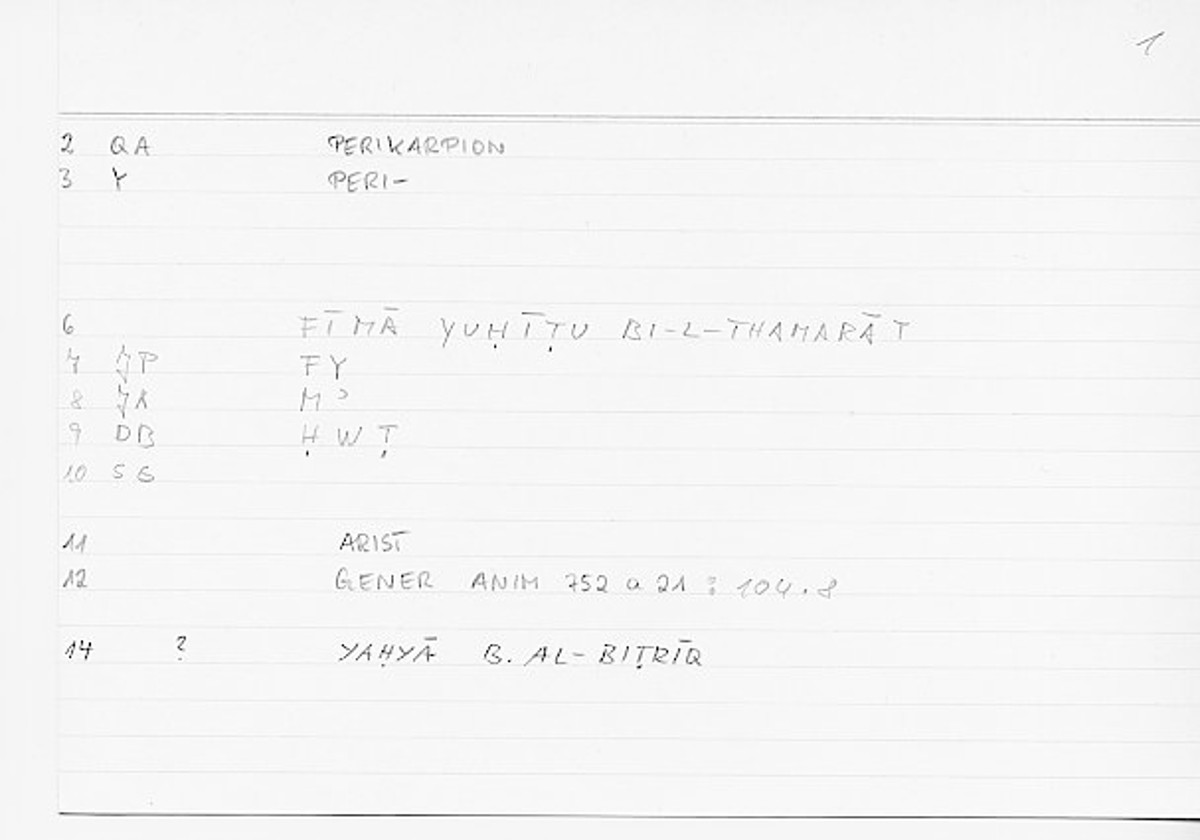 1
2 QA PERIKARPION
3 Y PERI-
6 FĪMĀ YUḤĪṬU BI-L-THAMARĀT
7 JP FY
8 JA Mʾ
9 DB Ḥ W Ṭ
10 SE
11 ARIST
12 GENER ANIM 752 a 21 : 104.8
14 ? YAḤYĀ B. AL-BIṬRĪQ